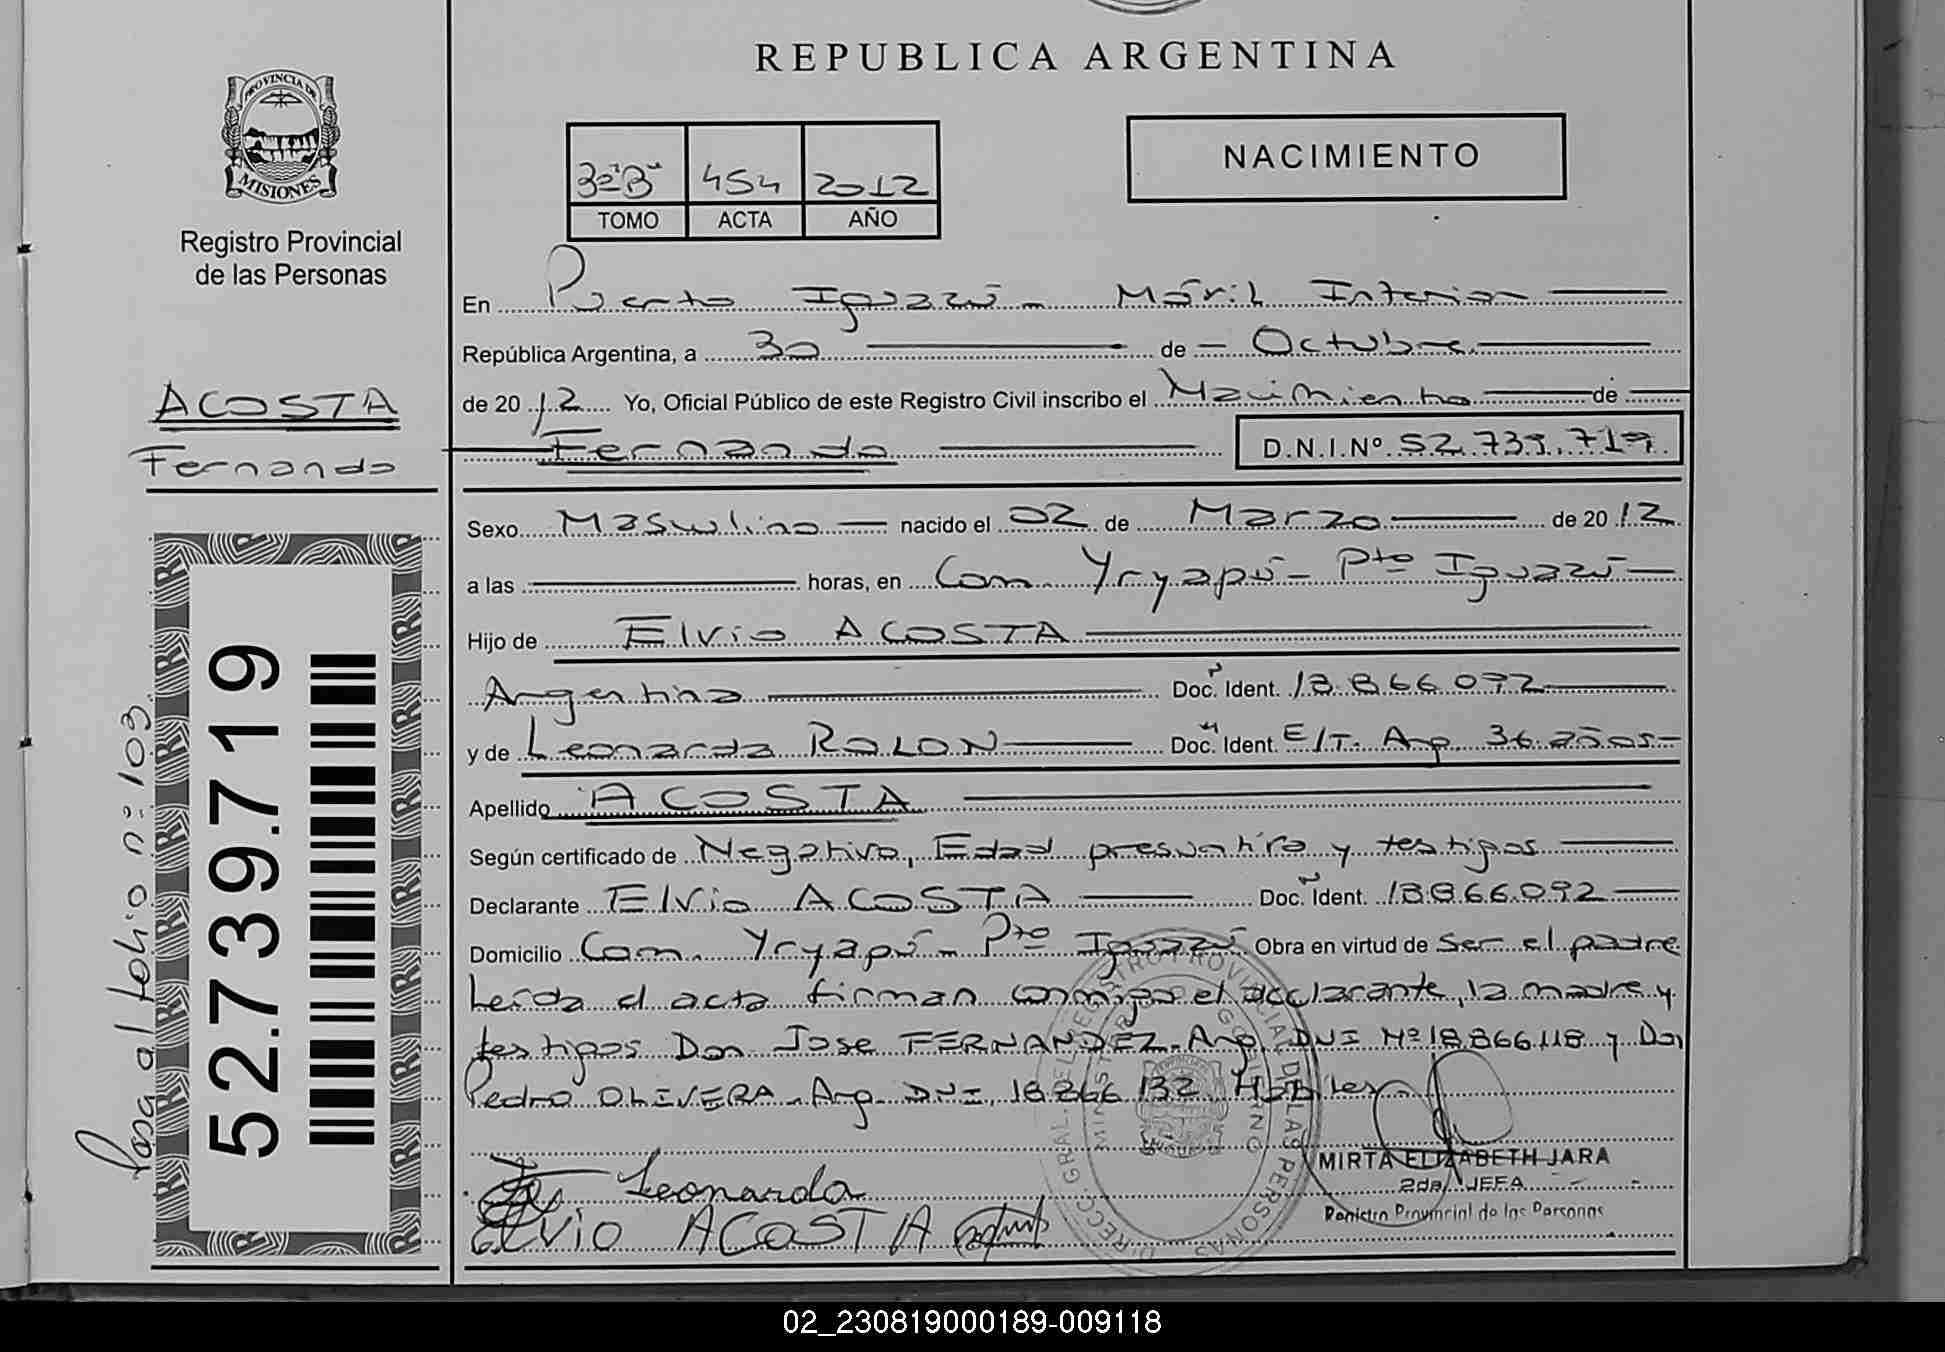 REPUBLICA ARGENTINA
PROVINCIA DE
MISIONES
Registro Provincial
de las Personas
3º "B" 454 2012
TOMO ACTA AÑO
NACIMIENTO
En Puerto Iguazú - Móvil Interior
República Argentina, a 30 de - Octubre
de 20 12 Yo, Oficial Público de este Registro Civil inscribo el Nacimiento de
Fernando D.N.I.Nº 52.739.719
ACOSTA
Fernando
Sexo Masculino nacido el 02 de Marzo de 20 12
a las horas, en Com. Yryapú - Pto Iguazú
Hijo de Elvio ACOSTA
Argentina Doc. Ident. 18.866.092
y de Leonarda ROLON Doc. Ident. E/T. Arg. 36 años
Apellido ACOSTA
Según certificado de Negativo, Edad presuntiva y testigos
Declarante Elvio ACOSTA Doc. Ident. 18.866.092
Domicilio Com. Yryapú - Pto Iguazú Obra en virtud de Ser el padre
Leída el acta firman conmigo el declarante, la madre y
testigos Don Jose FERNANDEZ. Arg. DNI Nº 18.866.118 y Don
Pedro OLIVERA. Arg. DNI. 18.866.132 Hábiles
52.739.719
Pasa al folio nº 103
Leonarda
Elvio ACOSTA
MIRTA ELIZABETH JARA
2da. JEFA
Registro Provincial de las Personas
02_230819000189-009118